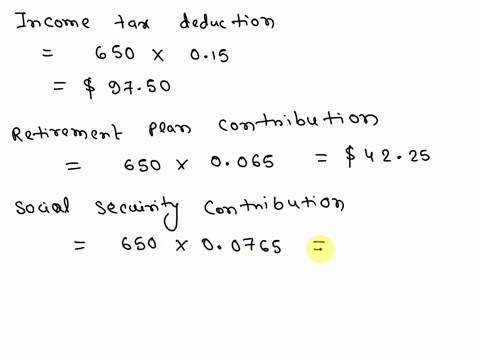 Income tax deduction
= 650 × 0.15
= $ 97.50
Retirement plan contribution
= 650 × 0.065 = $ 42.25
Social Security contribution
= 650 × 0.0765 =